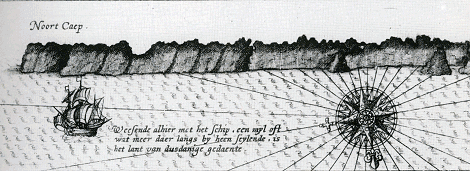 Noort Caep.
Weesende alhier met het schip, een myl oft
wat meer daer langs by heen seylende, is
het lant van dusdanige gedaente